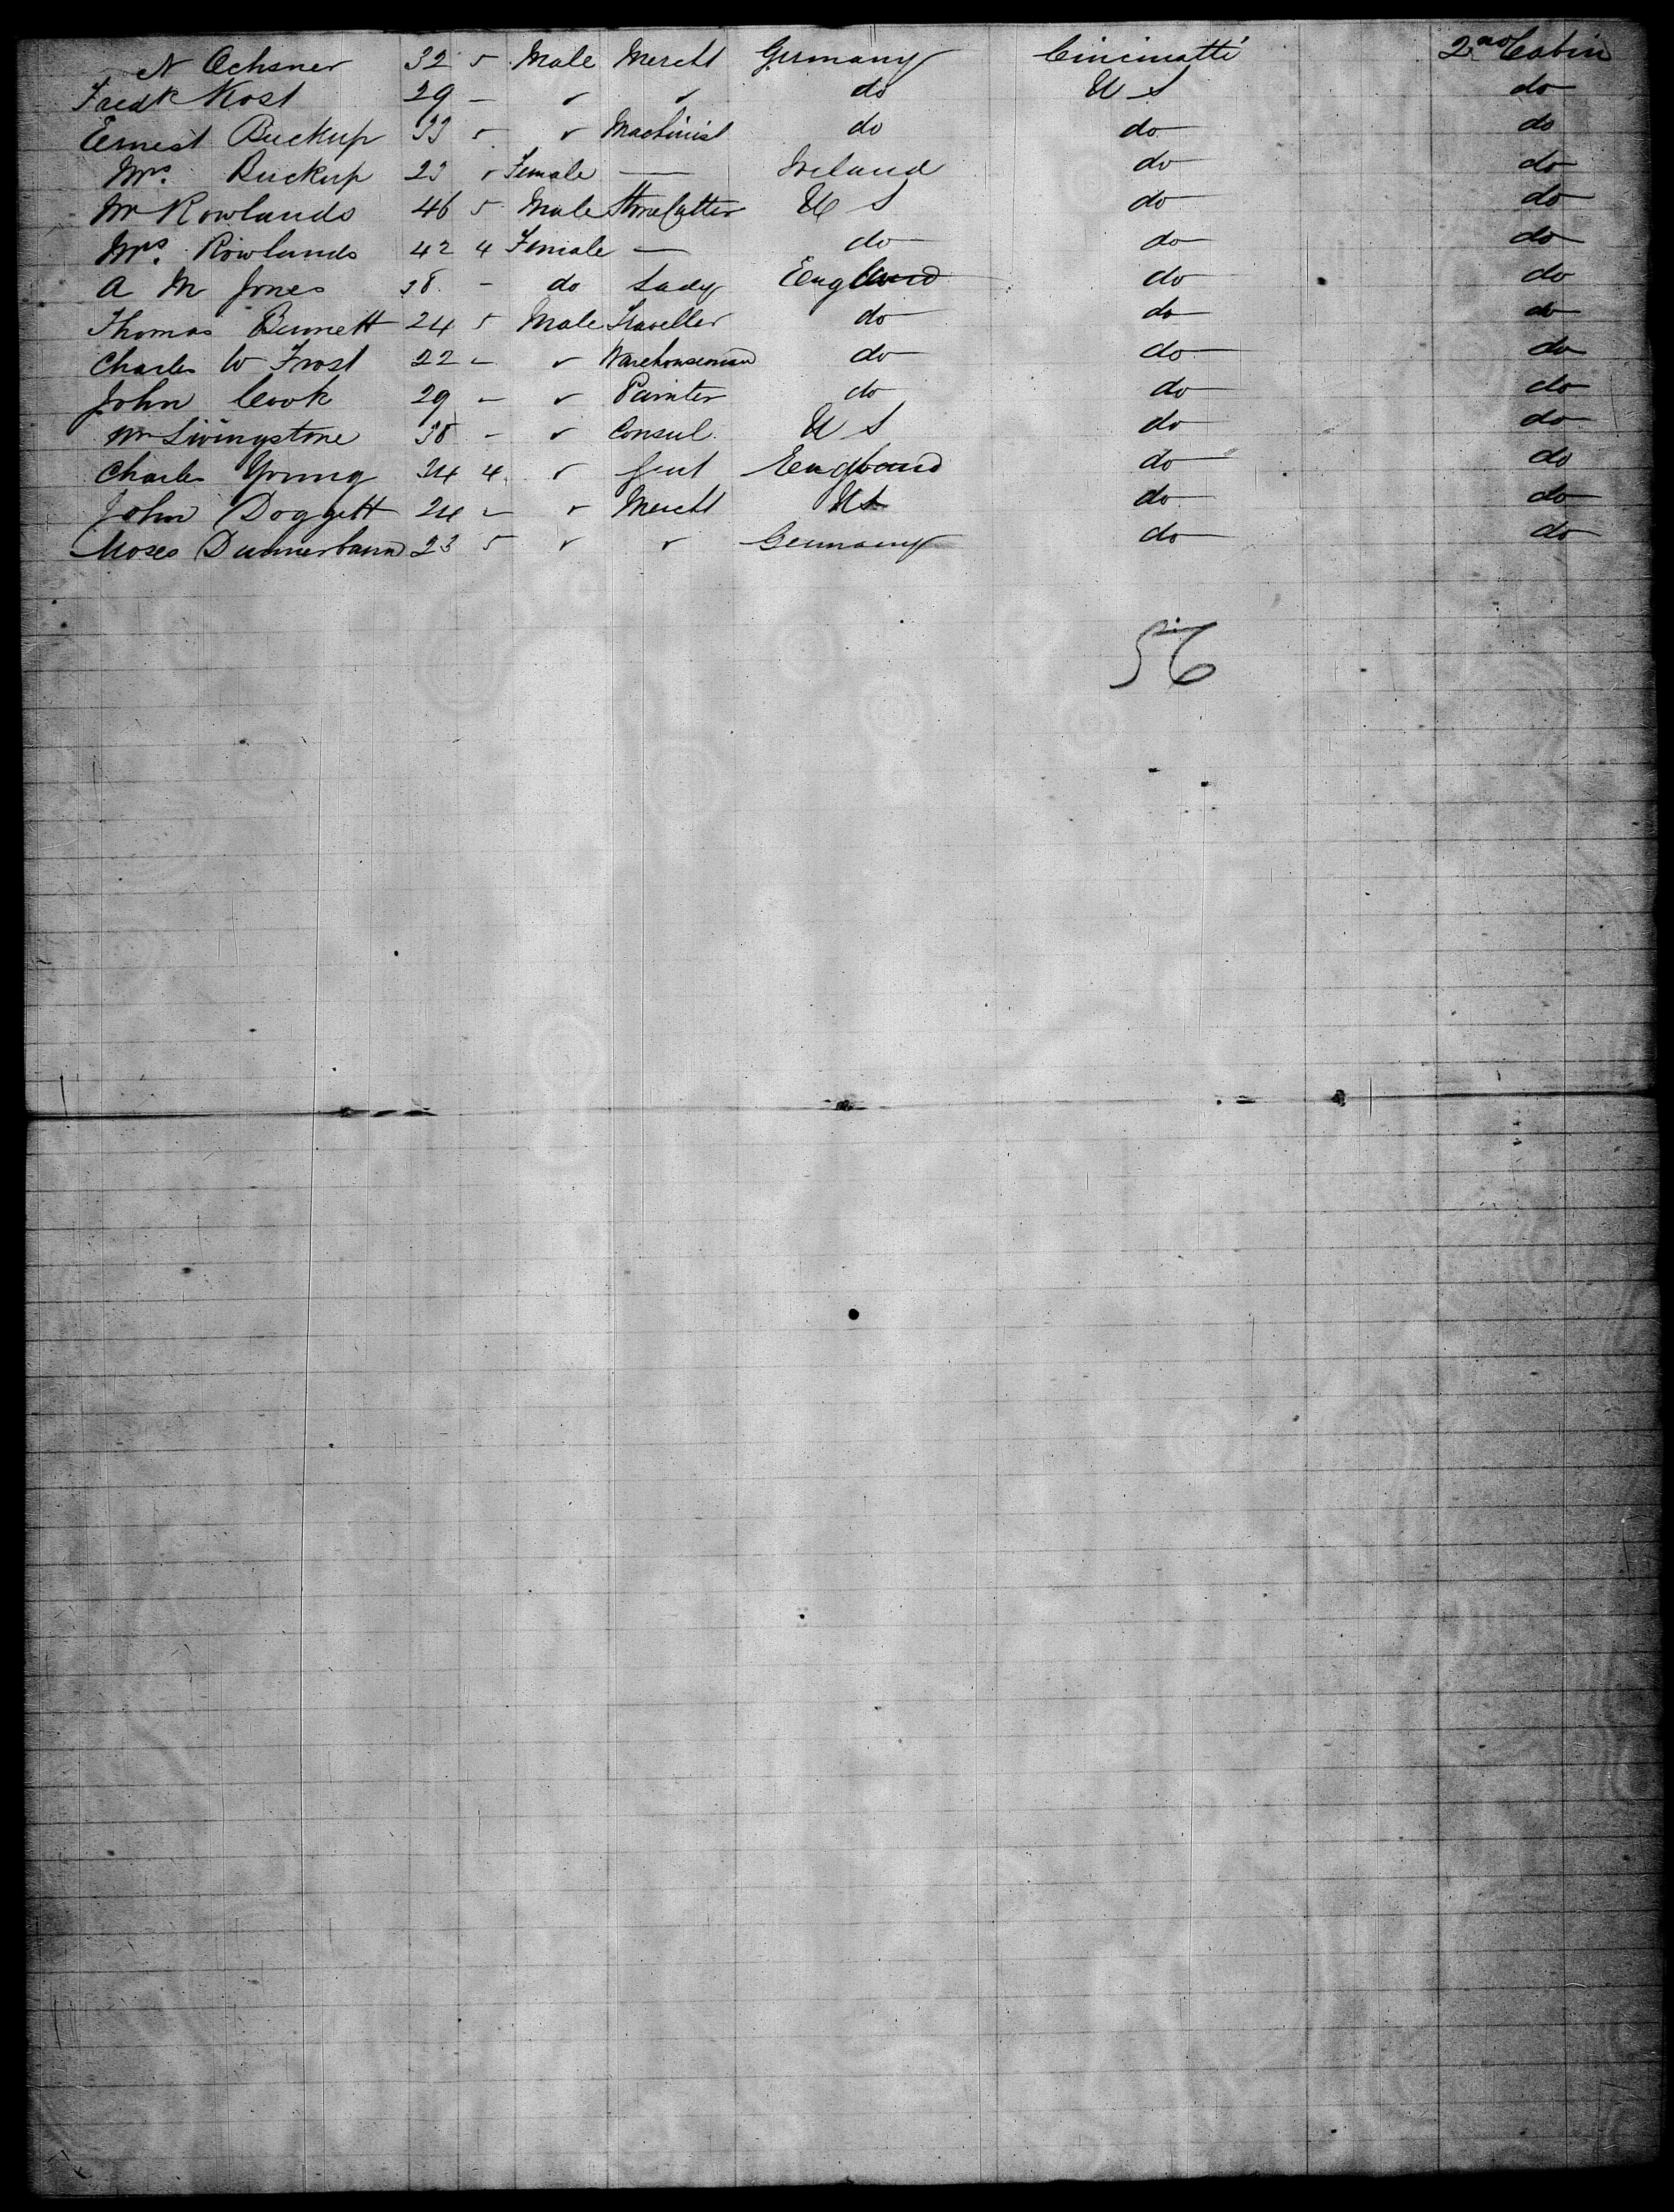 N Ochsner 32 5 Male Mercht Germany Cincinatti 2nd Cabin
Fredk Kost 29 - ✓ ✓ do U S do
Ernest Buckup 33 ✓ Machinist do do do
Mrs. Buckup 23 Female — Ireland do do
Mr Rowlands 46 5 Male Stone Cutter U S do do
Mrs. Rowlands 42 4 Female — do do do
A M Jones 38 - do Lady England do do
Thomas Bennett 24 5 Male Traveller do do do
Charles W Frost 22 - ✓ Warehouseman do do do
John Cook 29 - ✓ Painter do do do
Mr Livingstone 38 - ✓ Consul U S do do
Charles Young 24 4 ✓ Gent England do do
John Doggett 24 - ✓ Mercht U S do do
Moses 23 5 ✓ ✓ Germany do do
56